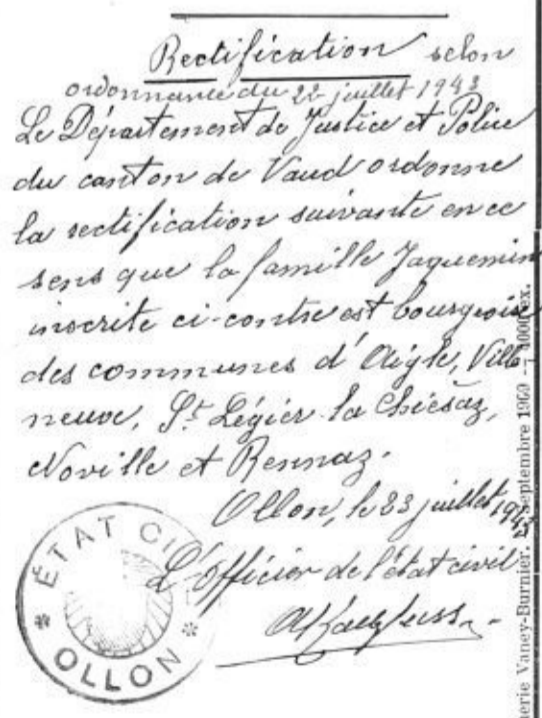 Rectification selon
ordonnance du 22 juillet 1943
Le Département de Justice et Police
du canton de Vaud ordonne
la rectification suivante en ce
sens que la famille Jaquemin
inscrite ci-contre est bourgeoise
des communes d'Aigle, Ville-
neuve, St Légier-la Chiésaz,
Noville et Rennaz.
Ollon, le 23 juillet 1943
L'Officier de l'état civil
ÉTAT CI
OLLON
nerie Vaney-Burnier. Septembre 1909 - 1000 ex.